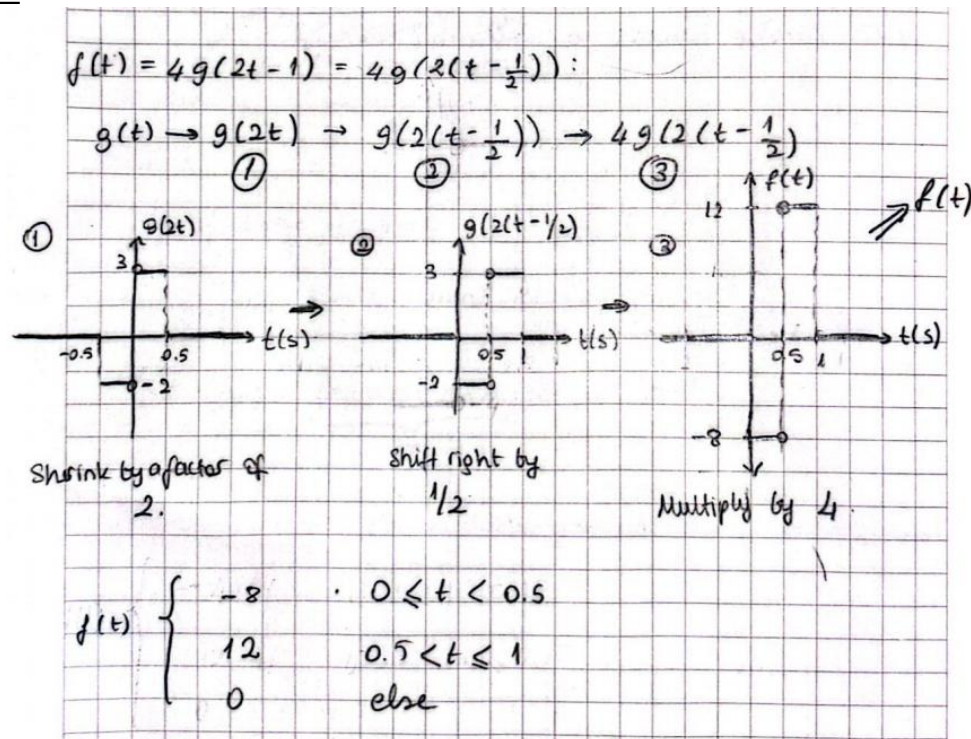 f(t) = 4g(2t - 1) = 4g(2(t - 1/2)) :
g(t) → g(2t) → g(2(t - 1/2)) → 4g(2(t - 1/2)
① ② ③
① g(2t)
3
-0.5 0.5 t(s)
-2
⇒
② g(2(t - 1/2)
3
0.5 1 t(s)
-2
⇒
③ f(t)
12
0.5 1 t(s)
-8
⇒ f(t)
Shrink by a factor of
2.
Shift right by
1/2
Multiply by 4.
f(t) {
-8 0 ≤ t < 0.5
12 0.5 < t ≤ 1
0 else